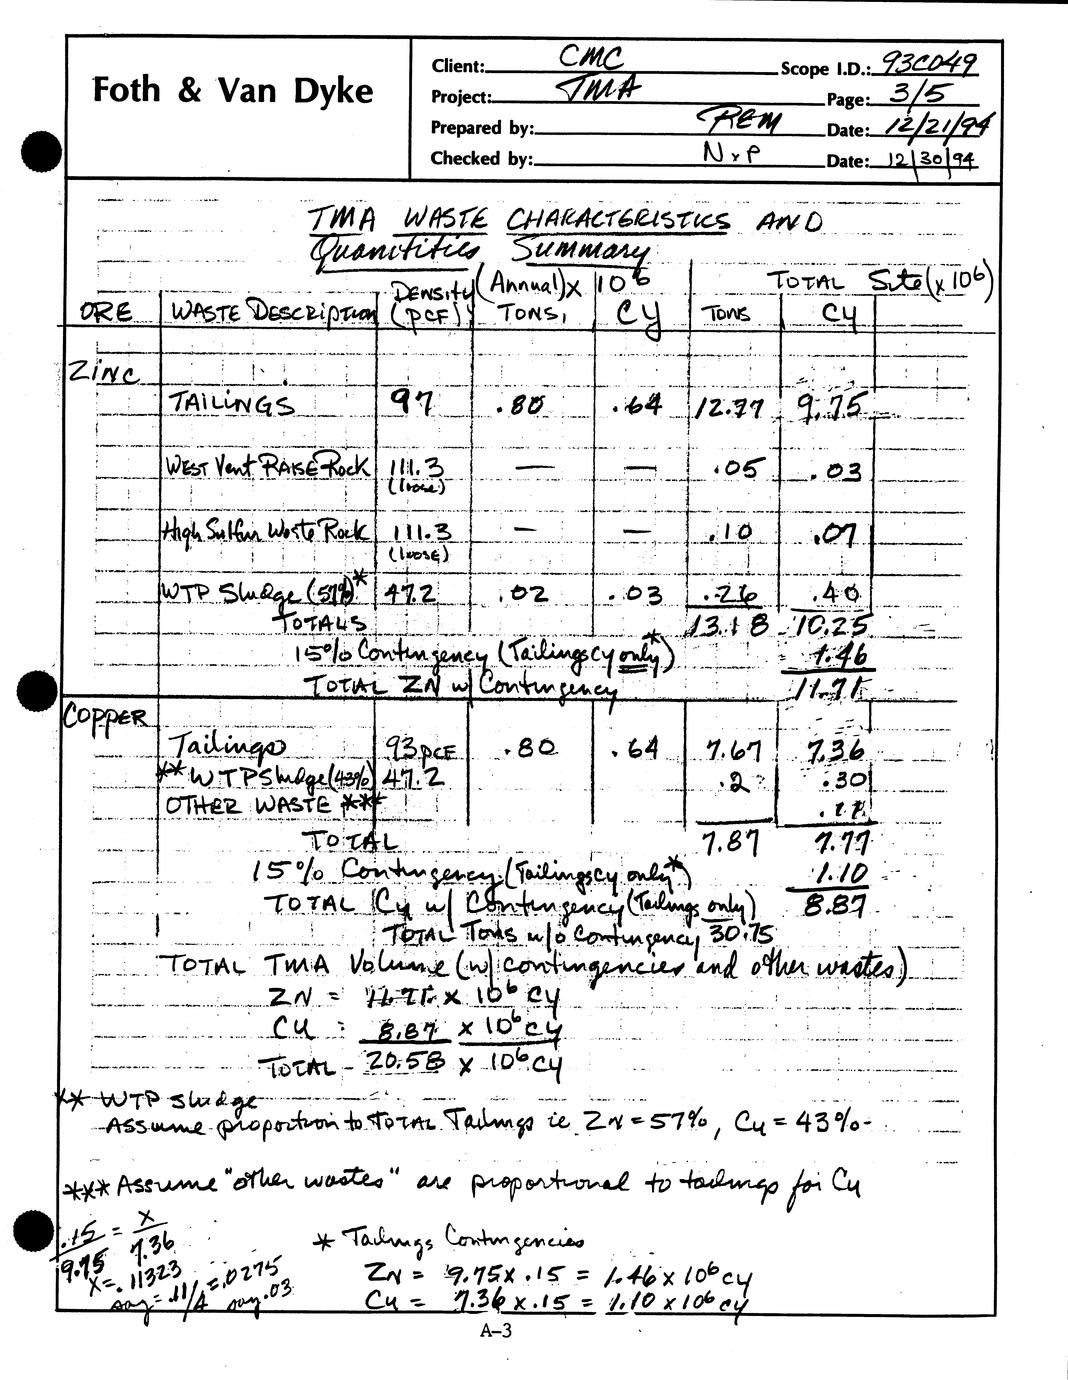 Foth & Van Dyke
Client: CMC Scope I.D.: 93C049
Project: TMA Page: 3/5
Prepared by: REM Date: 12/21/94
Checked by: NxP Date: 12/30/94
TMA WASTE CHARACTERISTICS AND
Quantities Summary
DENSITY (Annual) x 10⁶ TOTAL Site (x 10⁶)
ORE WASTE DESCRIPTION (PCF) TONS, CY TONS CY
ZINC
TAILINGS 97 .80 .64 12.77 9.75
WEST Vent RAISE Rock 111.3 — — .05 .03
(loose)
High Sulfur Waste Rock 111.3 — — .10 .07
(loose)
WTP Sludge (57%)* 47.2 .02 .03 .26 .40
TOTALS 13.18 10.25
15% Contingency (Tailings cy only*) 1.46
TOTAL ZN w/ Contingency 11.71
COPPER
Tailings 93 PCF .80 .64 7.67 7.36
** WTP Sludge (43%) 47.2 .2 .30
OTHER WASTE *** .11
TOTAL 7.87 7.77
15% Contingency (Tailings cy only*) 1.10
TOTAL Cy w/ Contingency (Tailings only) 8.87
TOTAL Tons w/o Contingency 30.75
TOTAL TMA Volume (w/ contingencies and other wastes)
ZN = 11.71 x 10⁶ CY
CU = 8.87 x 10⁶ CY
TOTAL - 20.58 x 10⁶ CY
** WTP Sludge
ASSUME proportion to TOTAL Tailings ie ZN = 57%, Cu = 43%-
*** Assume "other wastes" are proportional to tailings for Cu
.15/9.75 = x/7.36
x = .11323
say = .11/4 = .0275
say .03
* Tailings Contingencies
ZN = 9.75 x .15 = 1.46 x 10⁶ CY
CU = 7.36 x .15 = 1.10 x 10⁶ CY
A-3